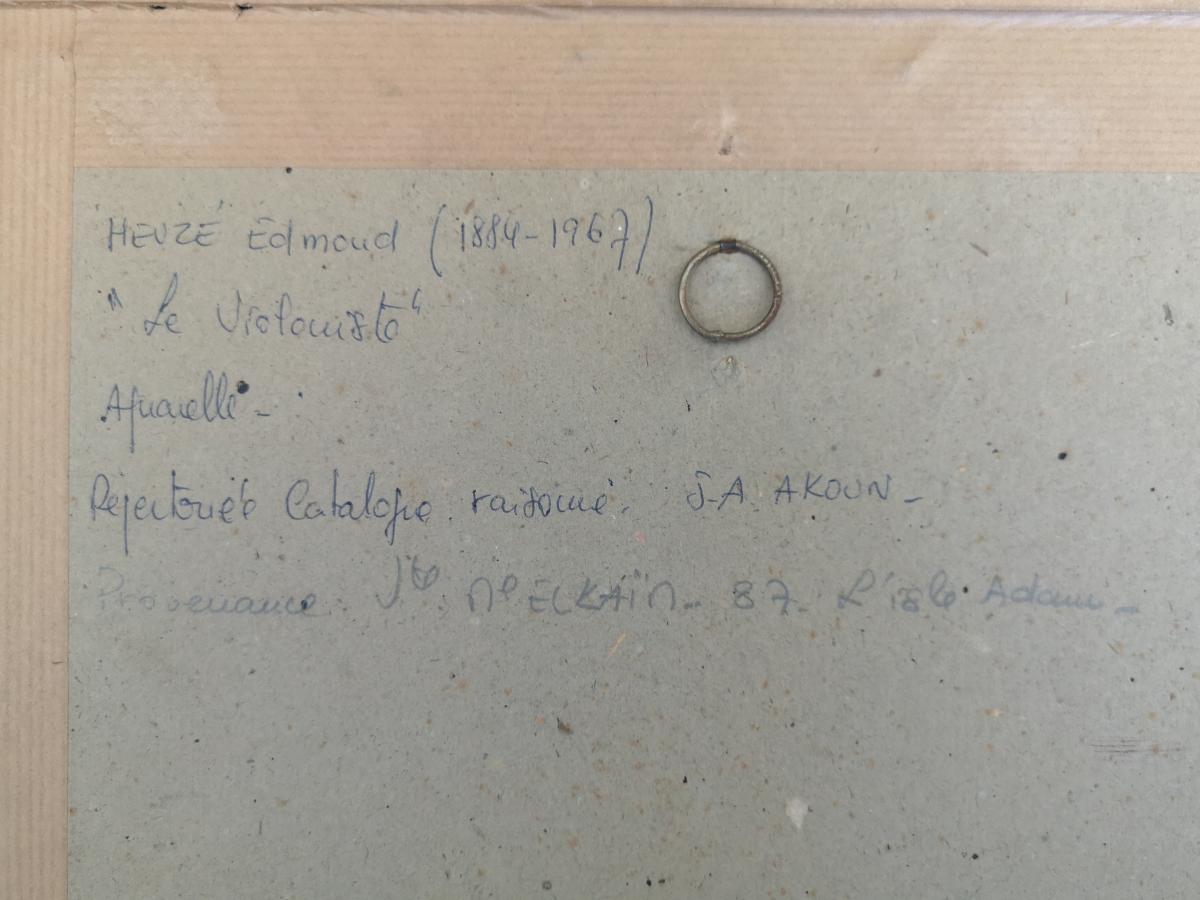 HEUZÉ Edmond (1884-1967)
"Le Violoniste"
Aquarelle -
Répertoriée Catalogue raisonné. J-A AKOUN -
Provenance. Vte Me ELKAÏM - 87 - L'isle Adam -